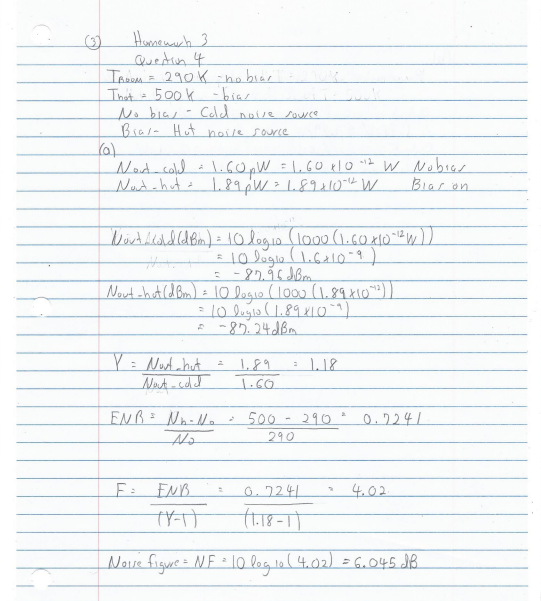 (3) Homework 3
Question 4
TRoom = 290 K - no bias
Thot = 500 K - bias
No bias - Cold noise source
Bias - Hot noise source
(a)
Nout_cold = 1.60 pW = 1.60 x10^-12 W No bias
Nout-hot = 1.89 pW = 1.89 x10^-12 W Bias on
Nout_cold (dBm) = 10 log10 (1000 (1.60 x10^-12 W))
= 10 log10 (1.6 x10^-9)
= -87.96 dBm
Nout-hot (dBm) = 10 log10 (1000 (1.89 x10^-12))
= 10 log10 (1.89 x10^-9)
= -87.24 dBm
Y = Nout_hot / Nout_cold = 1.89 / 1.60 = 1.18
ENR = Nh - No / No = 500 - 290 / 290 = 0.7241
F = ENR / (Y-1) = 0.7241 / (1.18-1) = 4.02
Noise figure = NF = 10 log10 (4.02) = 6.045 dB